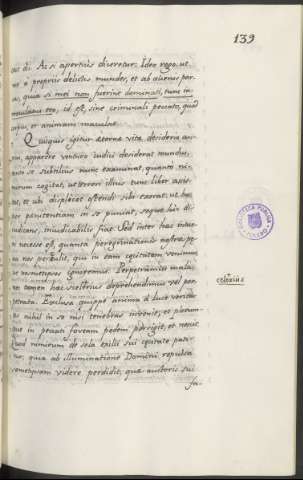 139
Ac si apertius diceretur: Ideo rogo, ut
a propriis delictis mundes, et ab alienis par-
quia si mei non fuerint dominati, tunc im-
maculatus ero, id est, sine criminali peccato, quod
corpus, et animam maculat.
Quisquis igitur æternæ vitæ desideria
apparere venturo iudici desiderat mundus,
se subtilius nunc examinat, quanto ni-
mirum cogitat, ut terrori illius tunc liber assis-
tat, et ubi displicet ostendi sibi exorat, ut hoc
per pænitentiam in se puniat, seque hic di-
iudicans, iniudicabilis fiat. Sed inter hæc intue-
ri necesse est, quanta peregrinationis nostræ pœ-
na nos perculit, qui in eam cæcitatem venimus
ut nosmetipsos ignoremus. Perpetramus mala,
nec tamen hæc celerius deprehendimus vel per-
petrata. Exclusa quippe anima a luce verita-
tis nihil in se nisi tenebras invenit, et plerum-
que in peccati foveam pedem porrigit, et nescit.
Quod nimirum de sola exilii sui cæcitate pati-
tur, quia ab illuminatione Domini repulsa
semetipsam videre perdidit, quæ auctoris sui
fa-
celerius
BIBLIOTECA